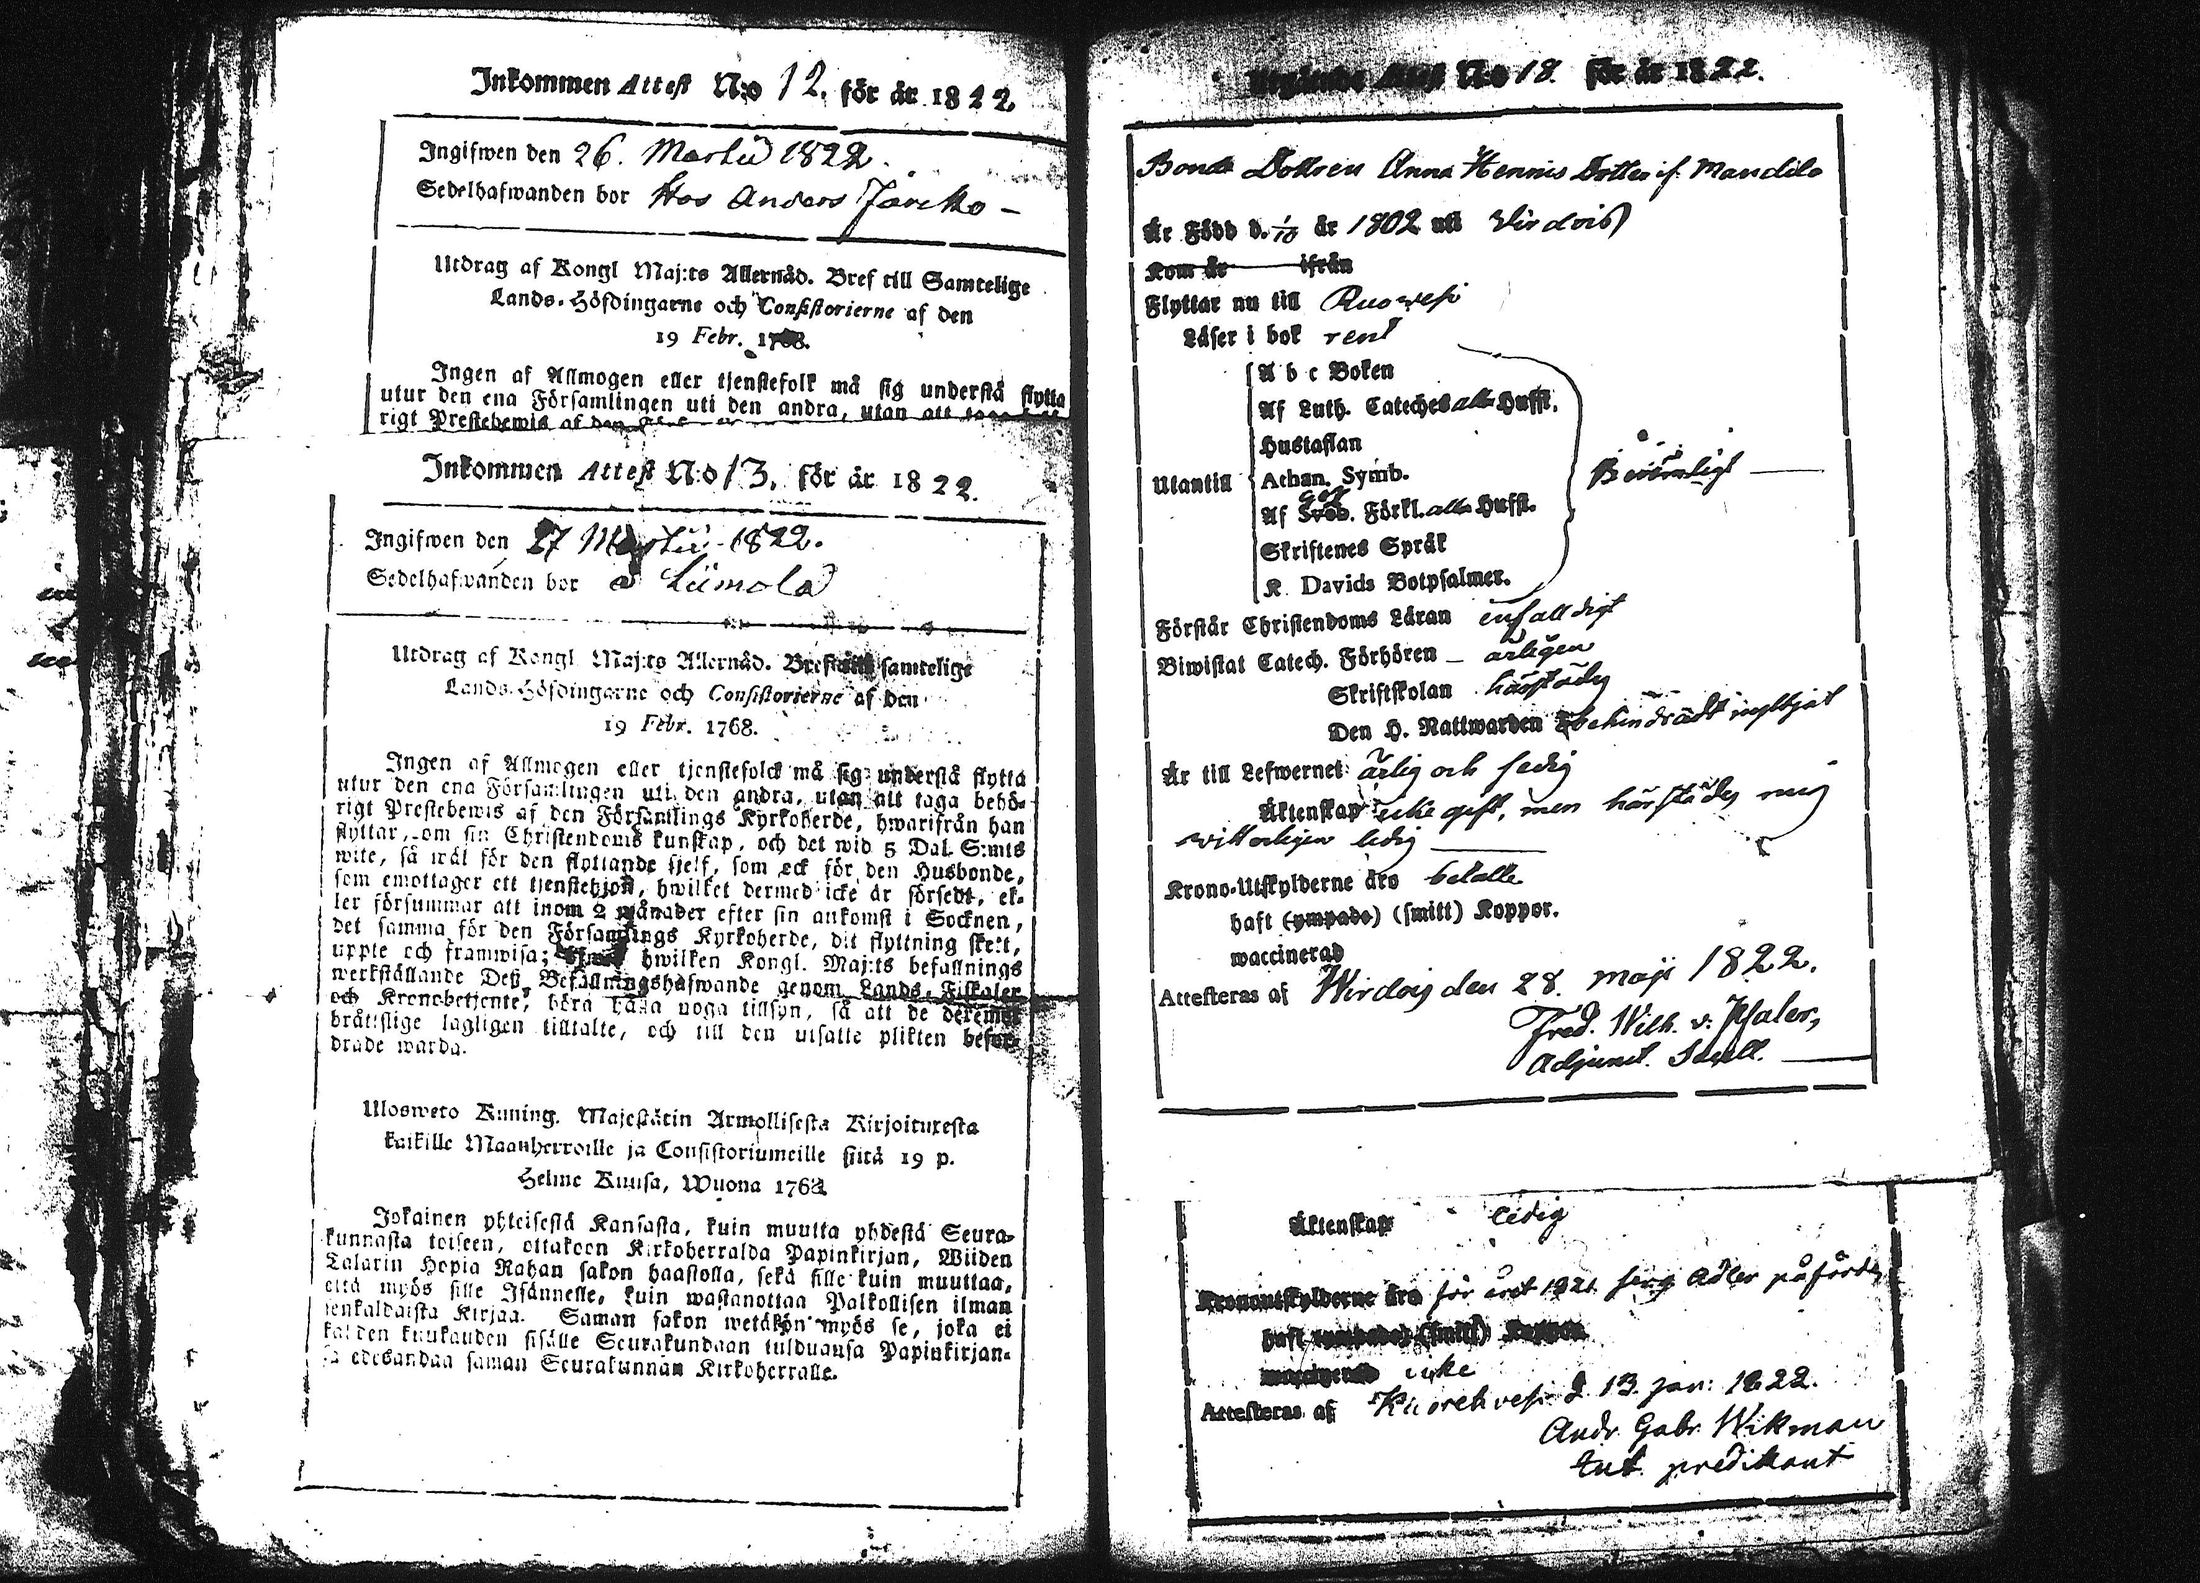 Inkommen Attest N:o 12. för år 1822
Ingifwen den 26. Martii 1822.
Sedelhafwanden bor Hos Anders
Utdrag af Kongl Maj:ts Allernåd. Bref till Samtelige
Lands-Höfdingarne och Consistorierne af den
19 Febr. 1768.
Ingen af Allmogen eller tjenstefolk må sig understå flytta
utur den ena Församlingen uti den andra, utan att taga
rigt Prestebewis af den
Inkommen Attest N:o 13. för år 1822.
Ingifwen den 27 Martii 1822.
Sedelhafwanden bor a Liimola
Utdrag af Kongl Maj:ts Allernåd. Bref till samtelige
Lands-Höfdingarne och Consistorierne af den
19 Febr. 1768.
Ingen af Allmogen eller tjenstefolck må sig understå flytta
utur den ena Församlingen uti den andra, utan att taga behö-
rigt Prestebewis af den Församlings Kyrkoherde, hwarifrån han
flyttar, om sin Christendoms kunskap, och det wid 5 Dal. S:mts
wite, så wäl för den flyttande sjelf, som ock för den Husbonde,
som emottager ett tjenstehjon, hwilket dermed icke är försedt, el-
ler försummar att inom 2 månader efter sin ankomst i Socknen,
det samma för den Församlings Kyrkoherde, dit flyttning skett,
uppte och framwisa; hwilken Kongl. Maj:ts befallnings
werkställande Deß Befallningshafwande genom Lands-Fiskaler
och Kronobetjente, böra hafwa noga tillsyn, så att de deremot
bråttslige lagligen tilltalte, och till den utsatte plikten befor-
drade warda.
Ulosweto Kuning. Majestätin Armollisesta Kirjoituxesta
kaikille Maanherroille ja Consistoriumeille siitä 19 p.
Helme Kuusa, Wuona 1768.
Jokainen yhteisestä Kansasta, kuin muutta yhdestä Seura-
kunnasta toiseen, ottakoon Kirkoherralda Papinkirjan, Wiiden
Talarin Hopia Rahan sakon haastolla, sekä sille kuin muuttaa,
että myös sille Isännelle, kuin wastanottaa Palkollisen ilman
senkaldaista Kirjaa. Saman sakon wetäkön myös se, joka ei
kahden kuukauden sisälle Seurakundaan tulduansa Papinkirjan-
sa edesandaa saman Seurakunnan Kirkoherralle.
Attest N:o 18. för år 1822.
Bonde Dottren Anna Hennis Dotter if. Mandila
Är Född d. år 1802 uti Virdois
Kom år ifrån
Flyttar nu till Ruowesi
Läser i bok rent
A b c Boken
Af Luth. Cateches alla Hufst.
Hustaflan
Utantill Athan. Symb. Berömligt
Af Sveb. Förkl. alla Hufst.
Skriftenes Språk
K. Davids Botpsalmer.
Förstår Christendoms Läran enfalldigt
Biwistat Catech. Förhören årligen
Skriftskolan härstädes
Den H. Nattwarden obehindradt nyttjat
Är till Lefwernet ärlig och sedig
Äktenskap icke gift, men härstädes mig
witterligen ledig
Krono-Utskylderne äro betalte
haft (ympade) (smitt) Koppor.
waccinerad
Attesteras af Wirdois den 28. Maji 1822.
Fred. Wilh. v. Pfaler,
Adjunct. Sacell.
Äktenskap ledig
Kronoutskylderne äro för året 1821 Adler påförde
haft (ympade) (smitt) Koppor
waccinerad icke
Attesteras af Kuorehvesi d. 13. jan: 1822.
Andr. Gabr. Wikman
predikant